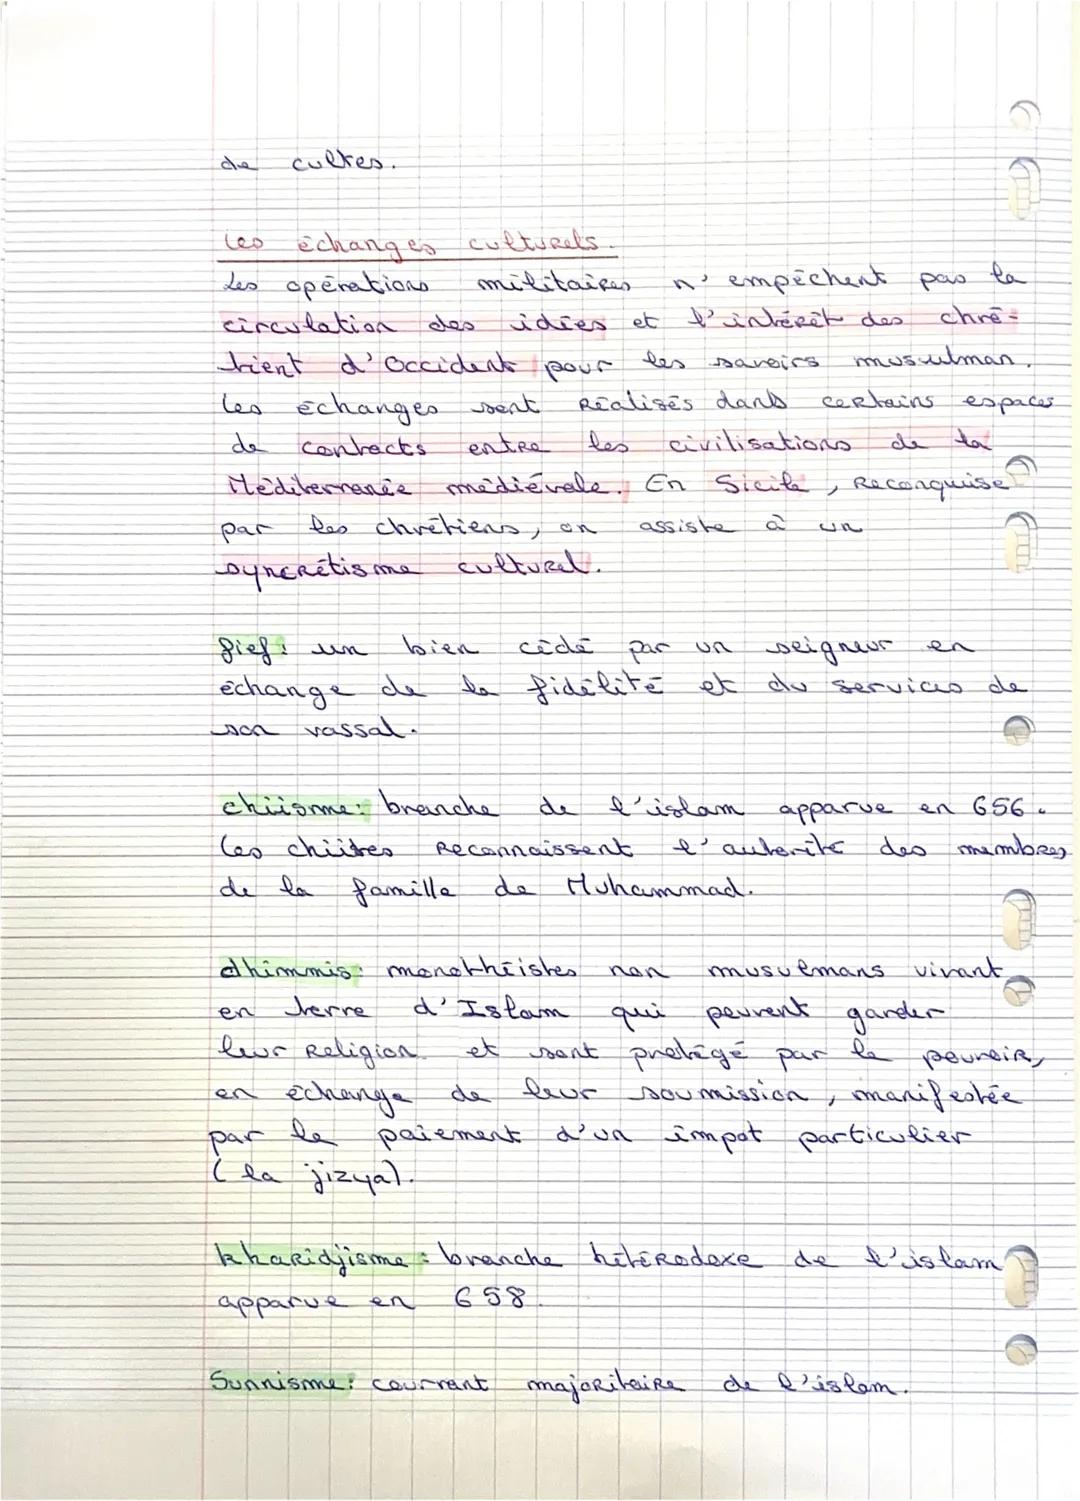 de cultes.
Les échanges culturels.
Les opérations militaires n'empêchent pas la
circulation des idées et l'intérêt des chré-
tient d'Occident pour les savoirs musulman.
Les échanges sont Réalisés dans certains espaces
de contacts entre les civilisations de la
Méditerranée médiévale. En Sicile, Reconquise
par les chrétiens, on assiste à un
syncrétisme culturel.
fief: un bien cédé par un seigneur en
échange de la fidélité et du services de
son vassal.
chiisme: branche de l'islam apparue en 656.
Les chiites Reconnaissent l'autorité des membres
de la famille de Muhammad.
dhimmis: monothéistes non musulmans vivant
en terre d'Islam qui peuvent garder
leur Religion et sont protégé par le pouvoir,
en échange de leur soumission, manifestée
par le paiement d'un impot particulier
(la jizya).
kharidjisme: branche hétérodoxe de l'islam
apparue en 658.
Sunnisme: courrant majoritaire de l'islam.